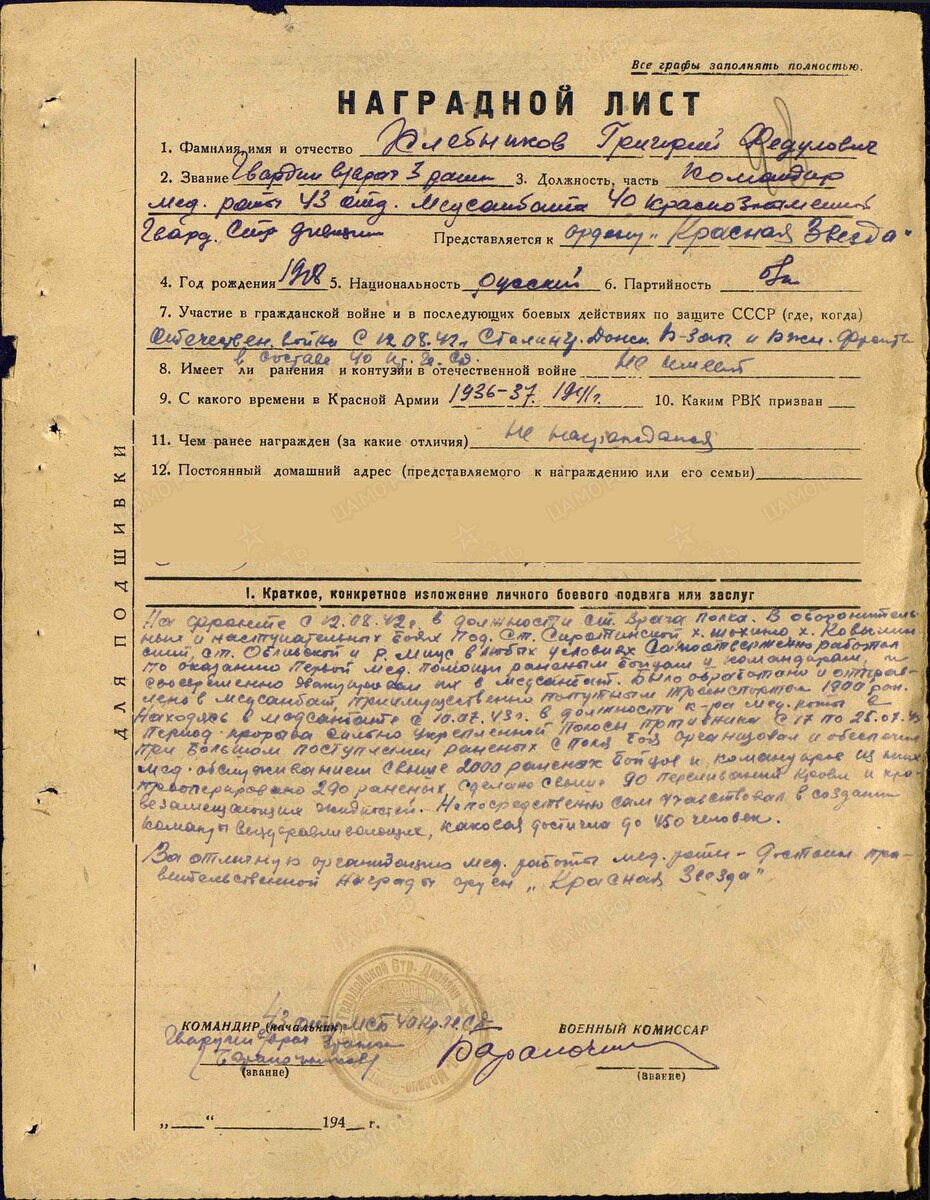 Все графы заполнять полностью.
НАГРАДНОЙ ЛИСТ
1. Фамилия, имя и отчество Хлебников Григорий Федулович
2. Звание Гвардии врач 3 ранг 3. Должность, часть Командир
мед. роты 43 отд. Медсанбата 40 краснознаменн
Гвард. Стр дивизии Представляется к ордену „Красная Звезда"
4. Год рождения 1908 5. Национальность Русский 6. Партийность б/п
7. Участие в гражданской войне и в последующих боевых действиях по защите СССР (где, когда)
Отечествен. война с 12.08.42г. Сталингр. Донск. Ю-Зап и Южн. фронты
в составе 40 кр. Гв. Сд.
8. Имеет ли ранения и контузии в отечественной войне не имеет
9. С какого времени в Красной Армии 1936-37. 1941г. 10. Каким РВК призван
11. Чем ранее награжден (за какие отличия) не награждался
12. Постоянный домашний адрес (представляемого к награждению или его семьи)
ДЛЯ ПОДШИВКИ
I. Краткое, конкретное изложение личного боевого подвига или заслуг
На фронте с 12.08.42г. в должности ст. врача полка. В оборонитель-
ных и наступательных боях под. Ст. Сиротинской х. х.
ский, ст. Обливской и р. Миус в любых условиях самоотверженно работал
по оказанию первой мед. помощи раненым бойцам и командирам, и
своевременно эвакуировал их в медсанбат. Было обработано и отправ-
лено в медсанбат, преимущественно попутным транспортом 1800 ран.
Находясь в медсанбате с 10.07.43г. в должности к-ра мед. роты в
период прорыва сильно укрепленной полосы противника с 17 по 25.07.43
при большом поступлении раненых с поля боя организовал и обеспечил
мед. обслуживанием свыше 2000 раненых бойцов и командиров из них
прооперировано 290 раненых, сделано свыше 90 переливаний крови и кро-
везамещающих жидкостей. Непосредственно сам участвовал в создании
команды выздоравливающих, каковая достигла до 450 человек.
За отличную организацию мед. работы мед. роты - Достоин пра-
вительственной Награды орден „Красная Звезда"
КОМАНДИР (начальник) 43 отд МСБ 40 Кр. Гв. СД
ВОЕННЫЙ КОМИССАР
Гвардии врач 3 ранга
(звание)
(звание)
„ “ 194 г.